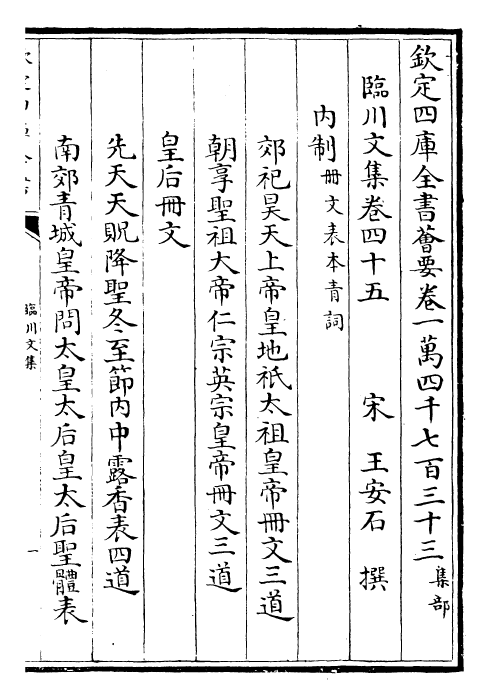 欽定四庫全書薈要卷一萬四千七百三十三 集部
臨川文集卷四十五 宋 王安石 撰
內制 冊文表本青詞
郊祀昊天上帝皇地祇太祖皇帝冊文三道
朝享聖祖大帝仁宗英宗皇帝冊文三道
皇后冊文
先天天貺降聖冬至節內中露香表四道
南郊青城皇帝問太皇太后皇太后聖體表
臨川文集
一